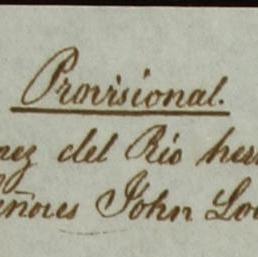 Provisional.
nez del Rio her
eñores John Lo